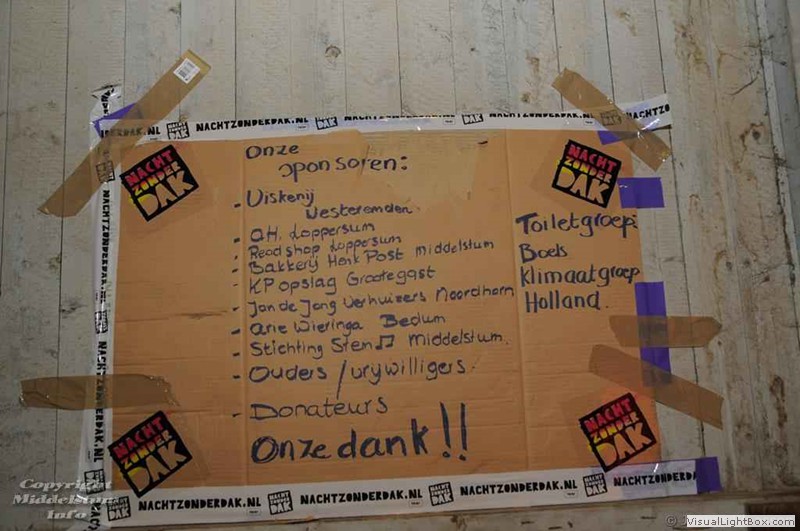 NACHTZONDERDAK.NL NACHT ZONDER DAK NACHTZONDERDAK.NL NACHT ZONDER DAK NACHTZONDERDAK.NL
NACHT
ZONDER
DAK
NACHT
ZONDER
DAK
Onze
sponsoren:
- Viskenij
Westeremden
- A.H. Loppersum
- Readshop Loppersum
- Bakkerij Henk Post Middelstum
- KP opslag Grootegast
- Jan de Jong Verhuizers Noordhorn
- Arie Wieringa Bedum
- Stichting Stem♫ Middelstum.
- Ouders / vrywilligers.
- Donateurs
Onze dank!!
Toiletgroep:
Boels
Klimaatgroep
Holland.
NACHTZONDERDAK.NL
NACHTZONDERDAK.NL
NACHT
ZONDER
DAK
NACHT
ZONDER
DAK
NACHTZONDERDAK.NL NACHT ZONDER DAK NACHTZONDERDAK.NL NACHT ZONDER DAK NACHTZONDERDAK.NL NACHTZONDERDAK.NL
Copyright
Middelstum
Info
VisualLightBox.com